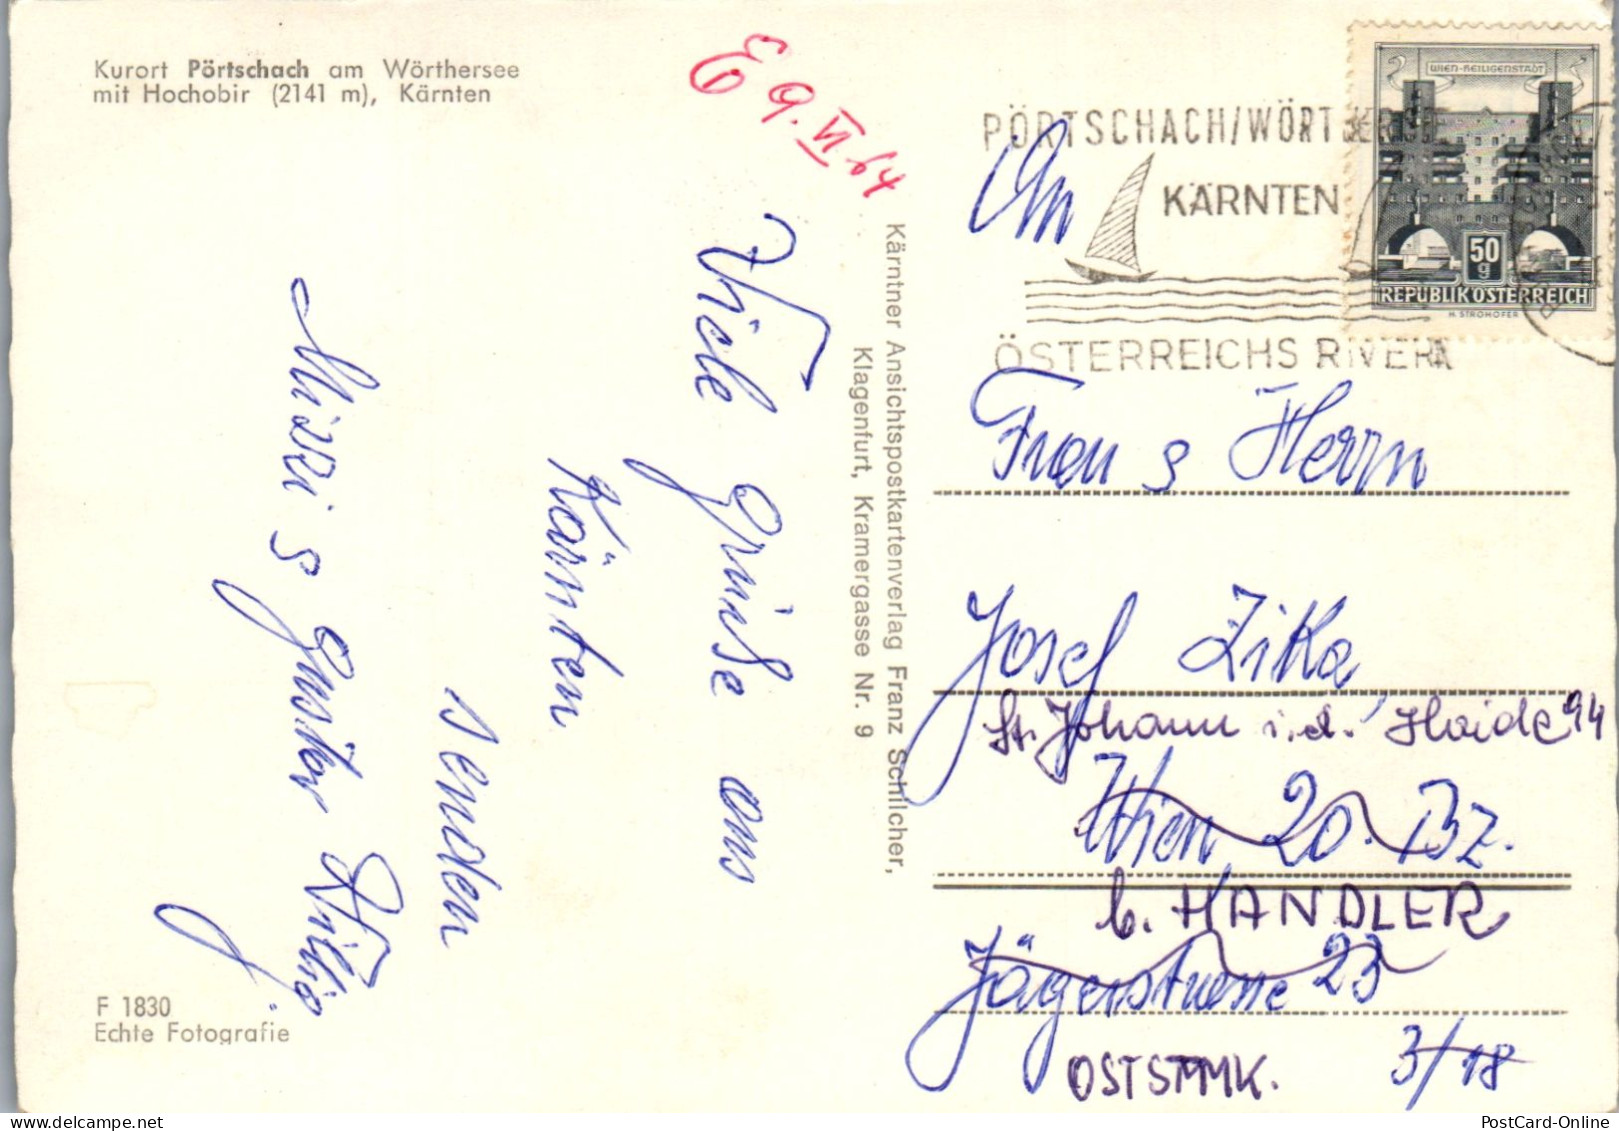 Kurort Pörtschach am Wörthersee
mit Hochobir (2141 m), Kärnten
E 9. VI 64
Viele Grüße aus
Kärnten
senden
Mizzi s Gustav
F 1830
Echte Fotografie
Kärntner Ansichtspostkartenverlag Franz Schilcher,
Klagenfurt, Kramergasse Nr. 9
PÖRTSCHACH/WÖRTHERSEE
KÄRNTEN
ÖSTERREICHS RIVIERA
WIEN-HEILIGENSTADT
50
g
REPUBLIK ÖSTERREICH
H. STROHOFER
An
Frau s Herrn
Josef Zika
St. Johann i. d. Haide 94
Wien 20. Bz.
b. HANDLER
Jägerstrasse 23
3/18
OSTSTMK.
PostCard-Online